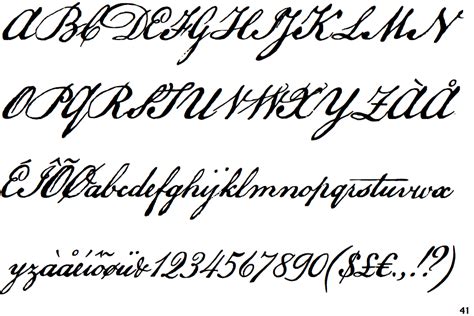 ABCDEFGHIJKLMN
OPQRSTUVWXYZÀÅ
ÉÎÕØabcdefghijklmnopqrstuvwx
yzàåéîõøü&1234567890($£€.,!?)
41